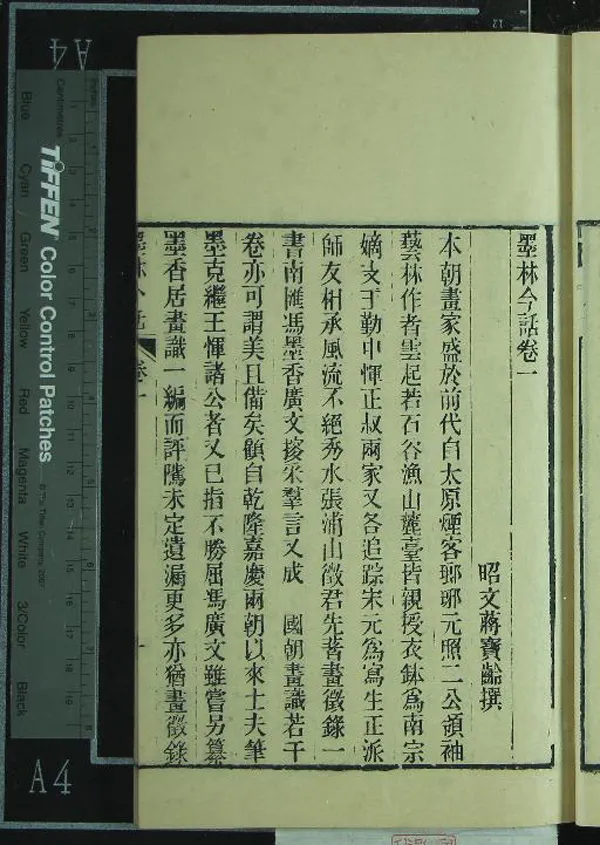 墨林今話卷一
昭文蔣寶齡撰
本朝畫家盛於前代自太原煙客瑯琊元照二公領袖
藝林作者雲起若石谷漁山麓臺皆親授衣鉢為南宗
嫡支于勤中惲正叔兩家又各追踪宋元為寫生正派
師友相承風流不絕秀水張浦山徵君先著畫徵錄一
書南匯馮墨香廣文採羣言又成 國朝畫識若干
卷亦可謂美且備矣顧自乾隆嘉慶兩朝以來士夫筆
墨克繼王惲諸公者又已指不勝屈馮廣文雖嘗另纂
墨香居畫識一編而評隲未定遺漏更多亦猶畫徵錄
墨林今話 卷一 一
A4
TIFFEN Color Control Patches
© The Tiffen Company, 2007
Centimetres
Inches
Blue
Cyan
Green
Yellow
Red
Magenta
White
3/Color
Black
A4
12